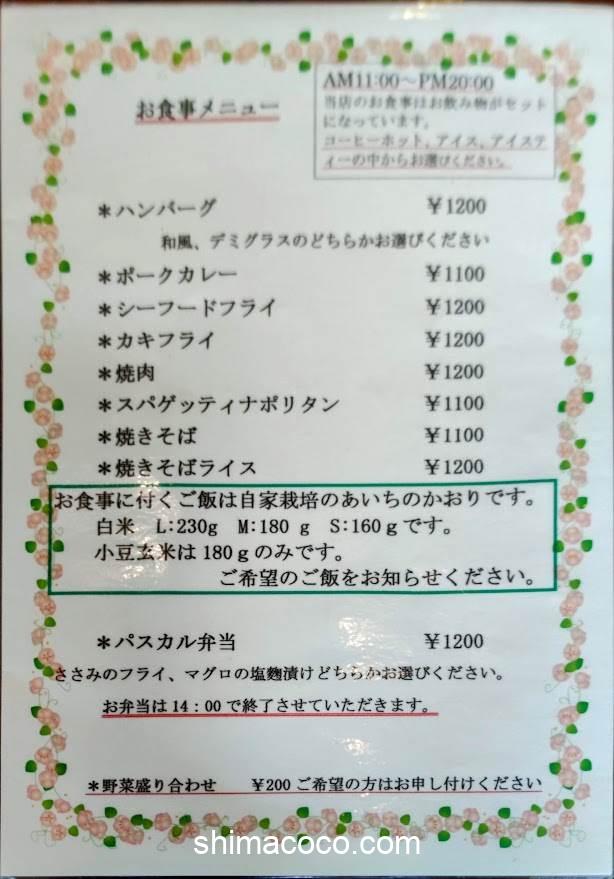 お食事メニュー
AM11:00～PM20:00
当店のお食事はお飲み物がセット
になっています。
コーヒーホット、アイス、アイステ
ィーの中からお選びください。
＊ハンバーグ ￥1200
和風、デミグラスのどちらかお選びください
＊ポークカレー ￥1100
＊シーフードフライ ￥1200
＊カキフライ ￥1200
＊焼肉 ￥1200
＊スパゲッティナポリタン ￥1100
＊焼きそば ￥1100
＊焼きそばライス ￥1200
お食事に付くご飯は自家栽培のあいちのかおりです。
白米 L:230g M:180 g S:160ｇです。
小豆玄米は180ｇのみです。
ご希望のご飯をお知らせください。
＊パスカル弁当 ￥1200
ささみのフライ、マグロの塩麴漬けどちらかお選びください。
お弁当は14：00で終了させていただきます。
＊野菜盛り合わせ ￥200 ご希望の方はお申し付けください
shimacoco.com